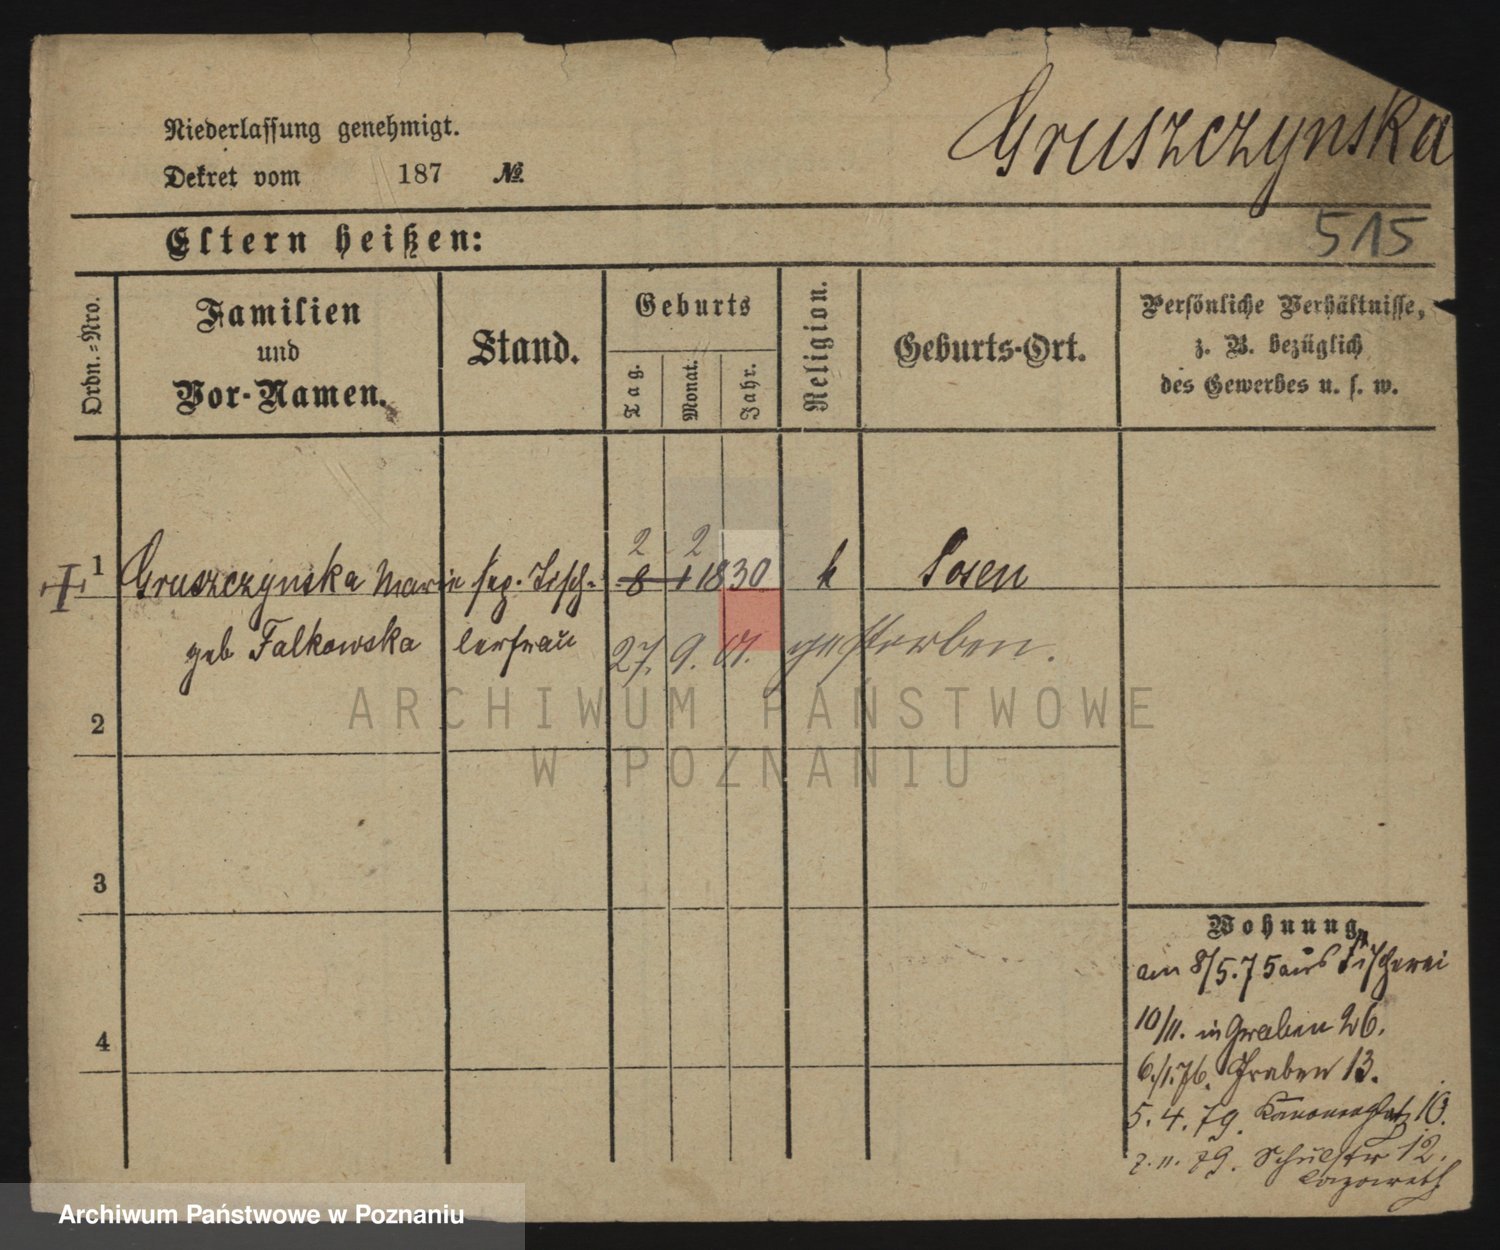 Gruszczynska
Niederlassung genehmigt.
Dekret vom 187 №
515
Eltern heißen:
Ordn.=Nro.
Familien
und
Vor-Namen.
Stand.
Geburts
Tag.
Monat.
Jahr.
Religion.
Geburts-Ort.
Persönliche Verhältnisse,
z. B. bezüglich
des Gewerbes u. s. w.
2 2
1 Gruszczynska Marie sep. Tisch- 8 1 1830 k Posen
geb Falkowska lerfrau 27. 9. 01. gestorben.
ARCHIWUM PAŃSTWOWE
W POZNANIU
2
3
4
Wohnung
am 8/5.75 aus Fischerei
10/11. in Graben 26.
6./1.76. Graben 13.
5. 4. 79. Kanonenplatz 10.
7. 11. 79. Schulstr 12.
Lazareth
Archiwum Państwowe w Poznaniu